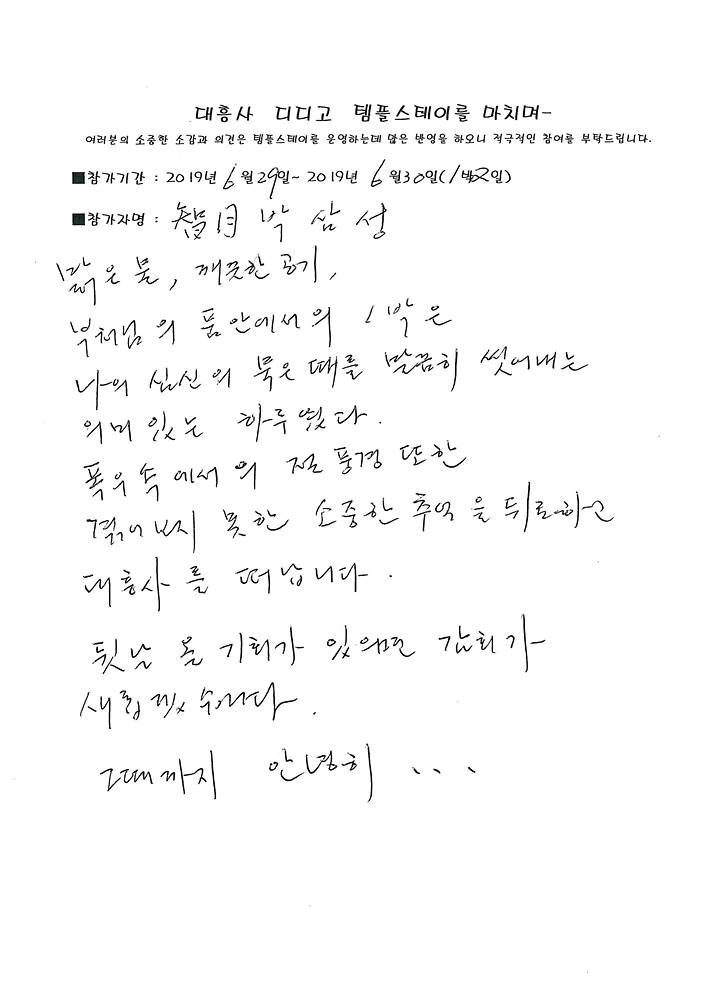 대흥사 디디고 템플스테이를 마치며-
여러분의 소중한 소감과 의견은 템플스테이를 운영하는데 많은 반영을 하오니 적극적인 참여를 부탁드립니다.
■참가기간 : 2019년 6월29일~ 2019년 6월30일(1박2일)
■참가자명 : 智月 박삼성
맑은 물, 깨끗한 공기,
부처님의 품안에서의 1박은
나의 심신의 묵은 때를 말끔히 씻어내는
의미 있는 하루였다.
폭우 속에서의 절 풍경 또한
겪어보지 못한 소중한 추억을 뒤로하고
대흥사를 떠납니다.
뒷날 올 기회가 있으면 감회가
새롭겠습니다.
그때까지 안녕히 ...